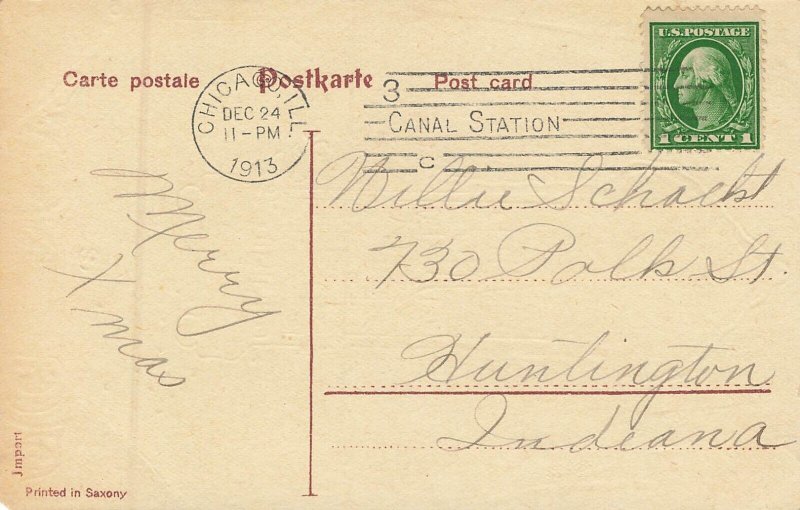 U.S. POSTAGE
1 CENT 1
Carte postale Postkarte Post card
CHICAGO, ILL.
DEC 24
11-PM
1913
3
CANAL STATION
C
Merry
Xmas
Willie Schacht
730 Polk St.
Huntington
Indeana
Import
Printed in Saxony